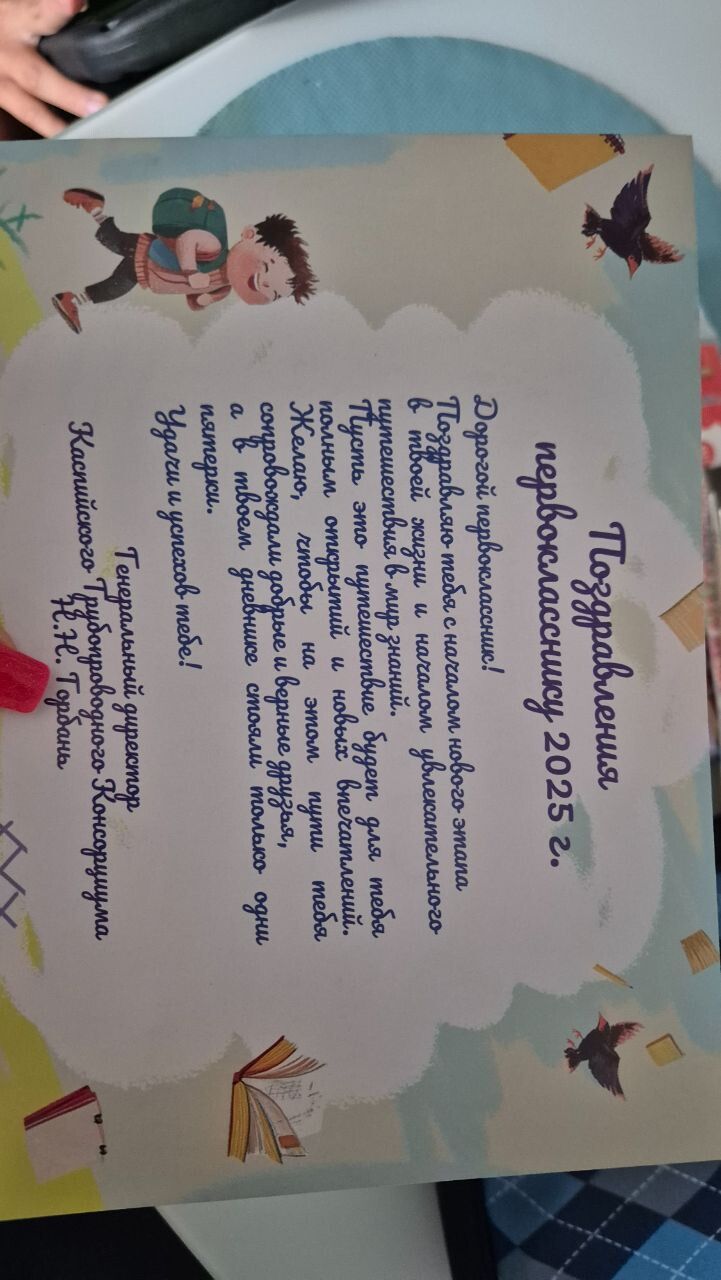 Поздравления
первокласснику 2025 г.
Дорогой первоклассник!
Поздравляю тебя с началом нового этапа
в твоей жизни и началом увлекательного
путешествия в мир знаний.
Пусть это путешествие будет для тебя
полным открытий и новых впечатлений.
Желаю, чтобы на этом пути тебя
сопровождали добрые и верные друзья,
а в твоем дневнике стояли только одни
пятерки.
Удачи и успехов тебе!
Генеральный директор
Каспийского Трубопроводного Консорциума
Н.Н. Горбань